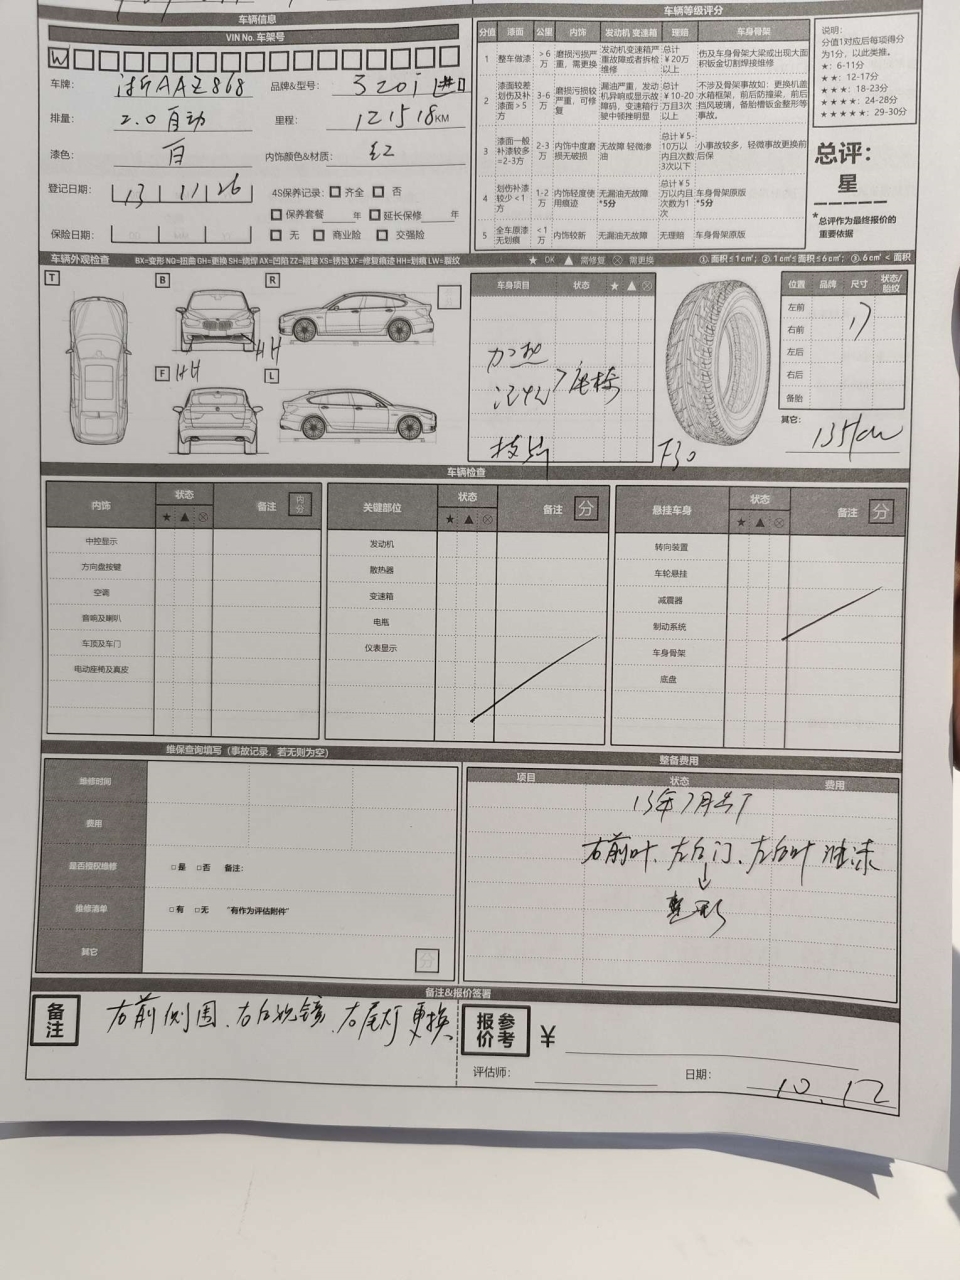 车辆信息
VIN No. 车架号
W
车牌: 浙AAZ868 品牌&型号: 320i 进口
排量: 2.0自动 里程: 121518KM
漆色: 白 内饰颜色&材质: 红
登记日期: 13 11 26 4S保养记录: 齐全 否
保养套餐 年 延长保修 年
保险日期: 无 商业险 交强险
车辆等级评分
分值 漆面 公里 内饰 发动机 变速箱 理赔 车身骨架
1 整车做漆 >6万 磨损污损严重，需更换 发动机变速箱严重故障或者拆检维修 总计¥20万以上 伤及车身骨架大梁或出现大面积钣金切割焊接维修
2 漆面较差划伤及补漆面>5 3-6万 磨损污损较严重，可修复 漏油严重，发动机异响或显示故障码，变速箱行驶中顿挫明显 总计¥10-20万且3次以上 不涉及骨架事故如：更换机盖水箱框架，前后防撞梁，前后挡风玻璃，备胎槽钣金整形等事故。
3 漆面一般补漆较多=2-3方 2-3万 内饰中度磨损无破损 无故障 轻微渗油 总计¥5-10万以内且次数3次以下 小事故较多，轻微事故更换前后保
4 划伤补漆较少<1方 1-2万 内饰轻度使用痕迹 无漏油无故障*5分 总计¥5万以内且次数为1次 车身骨架原版*5分
5 全车原漆无划痕 <1万 内饰较新 无漏油无故障 无理赔 车身骨架原版
说明:
分值1对应后每项得分为1分，以此类推。
★: 6-11分
★★: 12-17分
★★★: 18-23分
★★★★: 24-28分
★★★★★: 29-30分
总评:
星
*总评作为最终报价的重要依据
车辆外观检查 BX=变形 NG=扭曲 GH=更换 SH=烧焊 AX=凹陷 ZZ=褶皱 XS=锈蚀 XF=修复痕迹 HH=划痕 LW=裂纹 ★ OK ▲ 需修复 ⊗ 需更换 ①.面积≤1cm²; ②.1cm²≤面积≤6cm²; ③.6cm²<面积
T B R
HH
F HH L
车身项目 状态 ★ ▲ ⊗
F30
位置 品牌 尺寸 状态/胎纹
左前
右前
左后
右后
备胎
17
其它:
车辆检查
内饰 状态 ★ ▲ ⊗ 备注 内分
中控显示
方向盘按键
空调
音响及喇叭
车顶及车门
电动座椅及真皮
关键部位 状态 ★ ▲ ⊗ 备注 分
发动机
散热器
变速箱
电瓶
仪表显示
悬挂车身 状态 ★ ▲ ⊗ 备注 分
转向装置
车轮悬挂
减震器
制动系统
车身骨架
底盘
维保查询填写（事故记录，若无则为空）
维修时间
费用
是否授权维修 □是 □否 备注:
维修清单 □有 □无 "有作为评估附件"
其它 分
整备费用
项目 状态 费用
13年7月出厂
右前叶、左后门、左后叶
↓
整形
备注&报价签署
备注 右前侧围、右后视镜、右尾灯更换
参考报价 ¥
评估师: 日期: 10.12